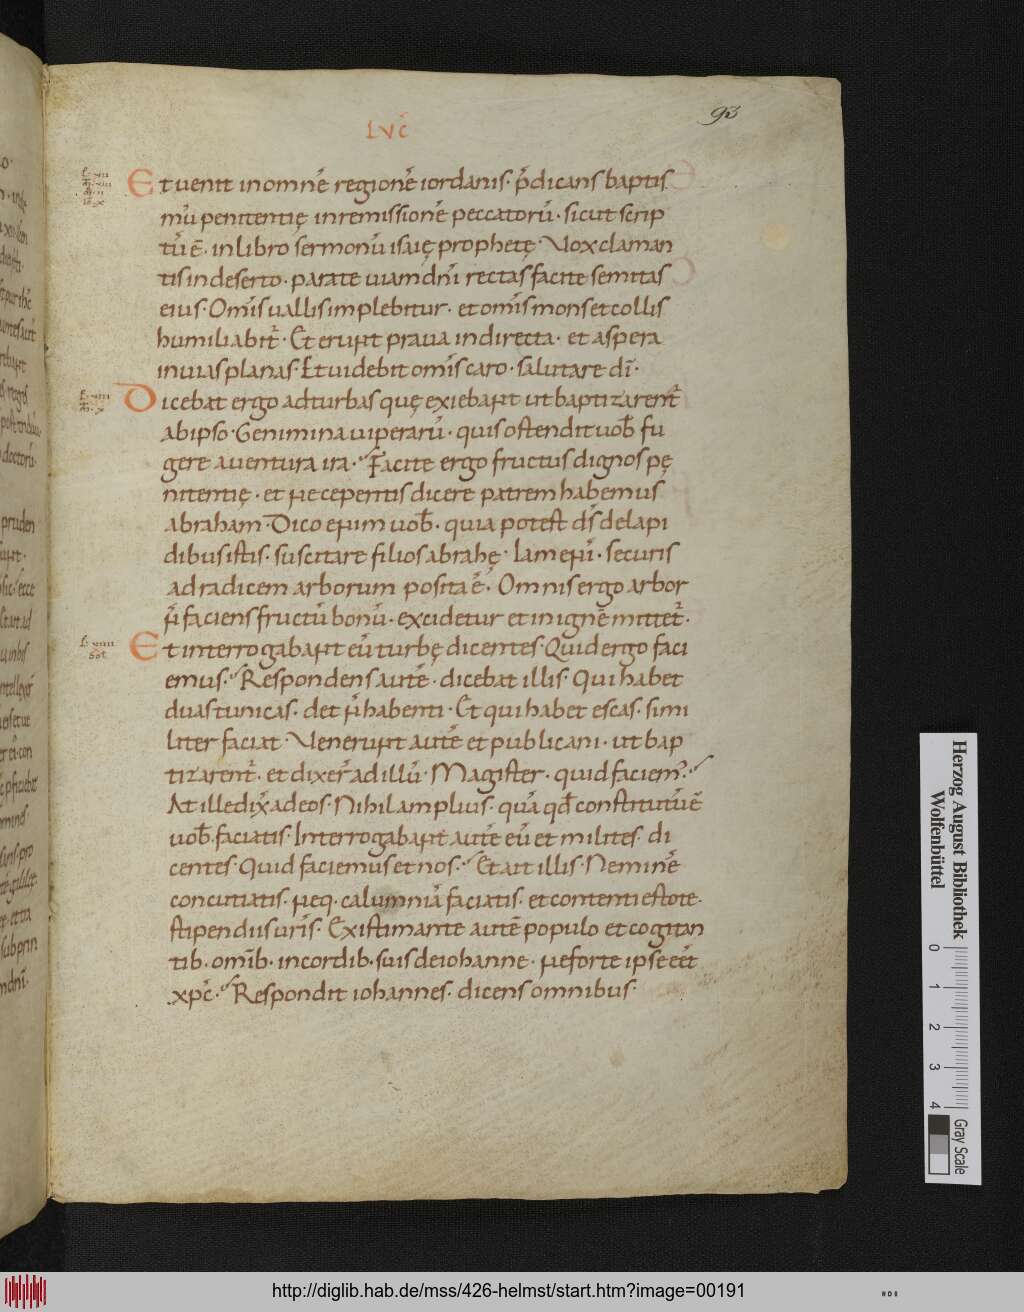 93
LVC̄
Et uenit in omnē regionē iordanis· p̄dicans baptis
mū penitentię in remissionē peccatorū· sicut scrip
tū ē· in libro sermonū isaię prophetę· Vox claman
tis in deserto· parate uiam dn̄i rectas facite semitas
eius· Om̄is uallis implebitur· et om̄is mons et collis
humiliabit̄· Et erunt praua in directa· et aspera
in uias planas· Et uidebit om̄is caro· salutare dī·
Dicebat ergo ad turbas quę exiebant ut baptizarent̄
ab ipso· Genimina uiperarū· quis ostendit uob̄ fu
gere a uentura ira· Facite ergo fructus dignos pę
nitentię· et ne ceperitis dicere patrem habemus
abraham Dico enim uob̄· quia potest ds̄ de lapi
dibus istis· suscitare filios abrahę· Iam enī· securis
ad radicem arborum posita ē· Omnis ergo arbor
n̄ faciens fructū bonū· excidetur et in ignē mittet̄·
Et interrogabant eū turbę dicentes· Quid ergo faci
emus· Respondens autē· dicebat illis· Qui habet
duas tunicas· det n̄ habenti· Et qui habet escas· simi
liter faciat· Venerunt autē et publicani· ut bap
tizarent̄· et dixer̄ ad illū· Magister· quid faciem᾿·
At ille dix̄ ad eos· Nihil amplius· quā qd̄ constitutū ē
uob̄· faciatis· Interrogabant autē eū et milites· di
centes· Quid faciemus et nos· Et ait illis· Neminē
concutiatis· neq· calumniā faciatis· et contenti estote·
stipendiis uris̄· Existimante autē populo et cogitan
tib· omīb· in cordib· suis de iohanne· ne forte ipse eēt
xpc̄· Respondit iohannes· dicens omnibus·
Herzog August Bibliothek
Wolfenbüttel
0 1 2 3 4
Gray Scale
http://diglib.hab.de/mss/426-helmst/start.htm?image=00191